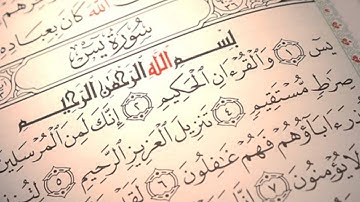 الله كان بعباده
سورة يس
بسم الله الرحمن الرحيم
يس ١ والقرءان الحكيم ٢ إنك لمن المرسلين
صرط مستقيم ٤ تنزيل العزيز الرحيم ٥
ءاباؤهم فهم غفلون ٦ لقد
لا يؤمنون ٧ إنا